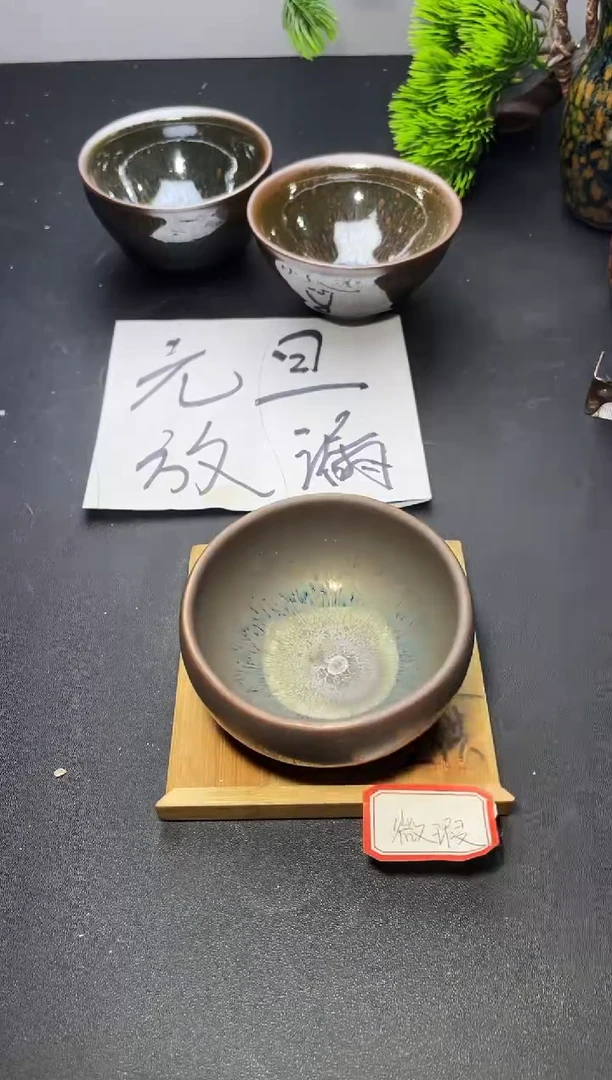 元旦
放漏
微瑕